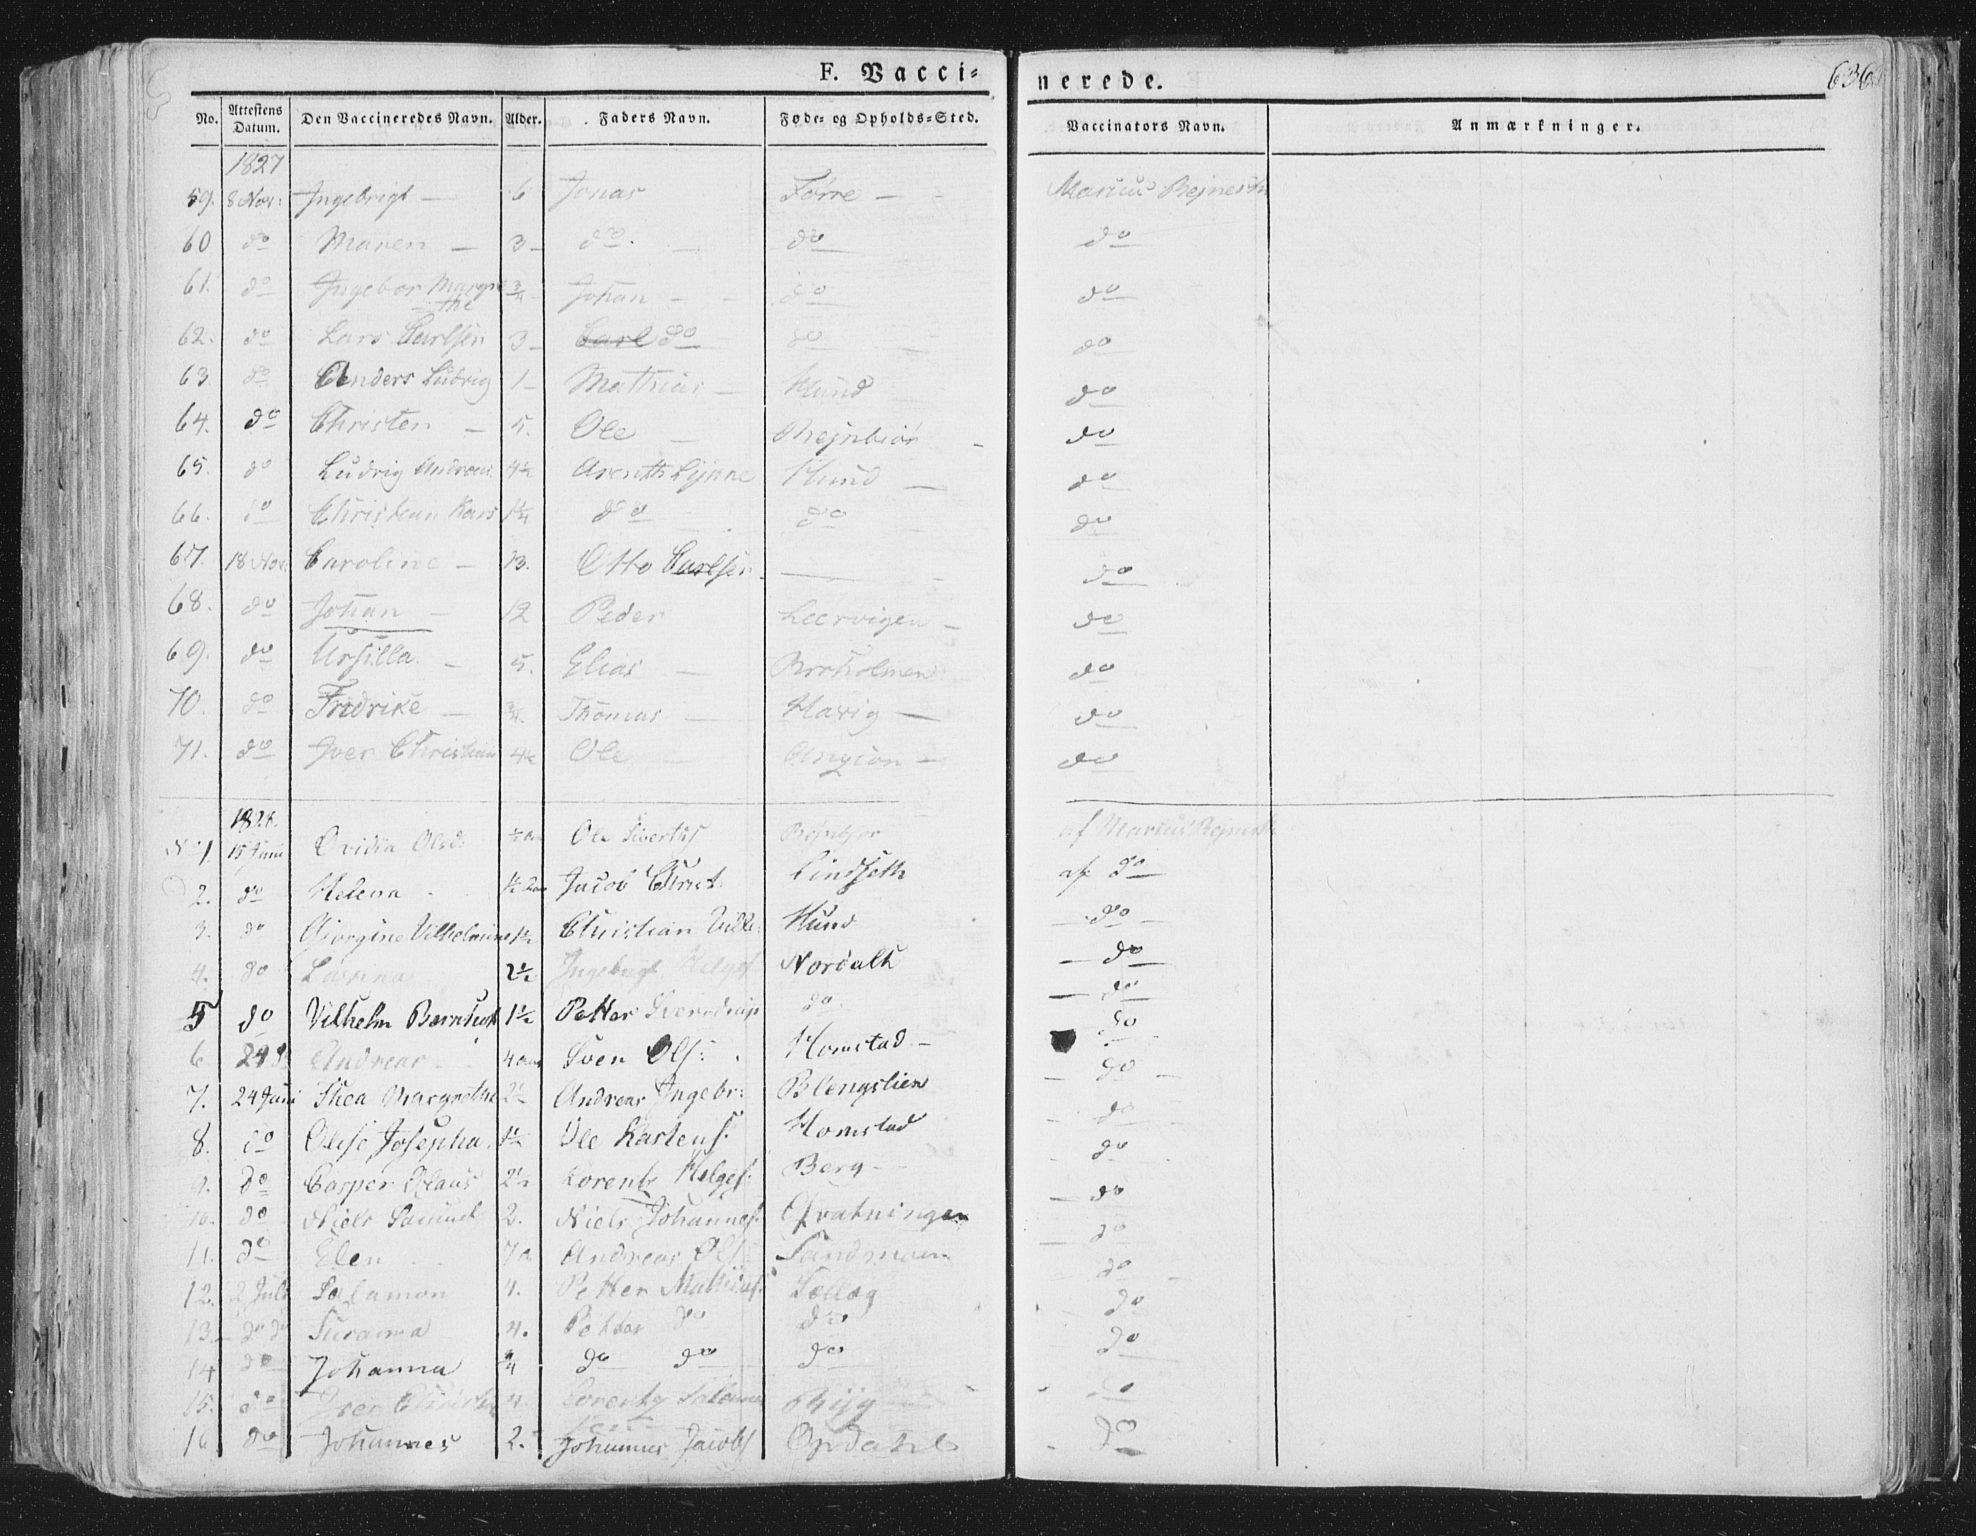 F. Vacci=
nerede.
636
No. Attestens Datum. Den Vaccineredes Navn. Alder. Faders Navn. Føde= og Opholds=Sted. Vaccinators Navn. Anmærkninger.
1827
59. 8 Nov: Ingebrigt — 6 Jonas Førre — Marcus
60 do Maren — 3 — do. do do
61. do Ingebor Margre the 3/4 Johan — do do
62. do Lars Carlsen 3 — Carl do do do
63 do Anders Ludvig 1 — Mathias — Hund do
64. do Christen — 5. Ole — do
65. do Ludvig 4½ Arenth Lynne Hund — do
66. do Christian 1¼ do do do
67. 18 Nov. Caroline — 13. Otto Carlsen — do
68. do Johan — 12 Peder Leervigen — do
69. do Ursilla. — 5. Elias — do
70. do Fredrike — 3/4. Thomas — Havig — do
71. do Iver Christian 4½ Ole do
1828.
No 1. 15 Juni Ovidia Olsd: Ole Sivertss af Marcus
2. do Helena 1½ Jacob Lindseth af do
3. do Giorgine Vilhelmine 1½ Christian Hund — do —
4. do Lovina 2½ Ingebrigt Helges: Nordalh — do
5 do Vilhelm 1½ Petter Sverdrup do — do
6. 24 Andreas 4 Sven Ols: Homstad — do
7. 24 Juni Thea Margrethe 2½ Andreas Ingebr: Blengslien — do —
8. do Olise Josepha 1½ Ole Karstens: Homstad — do
9. do Casper Klaus 2½ Lorents Helges: Berg — do
10. do Niels Samuel 2. Niels Johannes: Qvatningen — do
11. do Elen 7 Andreas Ols: — do
12. 2 Juli Salamon 4. Petter Mathias: Sellæg do
13. do do 4. Petter do do do
14 do Johanna 3/4 do do do do
15. do Iver 4. Lorents do
16 do Johannes 2. Johannes Jacobs Opdahl do